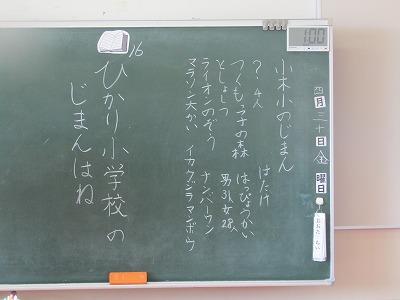 四月三十日金曜日
1:00
小木小のじまん
?・4人 はたけ
つくもっ子の森 はっぴょうかい
としょしつ 男31人女28人
ライオンのぞう ナンバーワン
マラソン大かい イカグジラマンボウ
16
ひかり小学校の
じまんはね